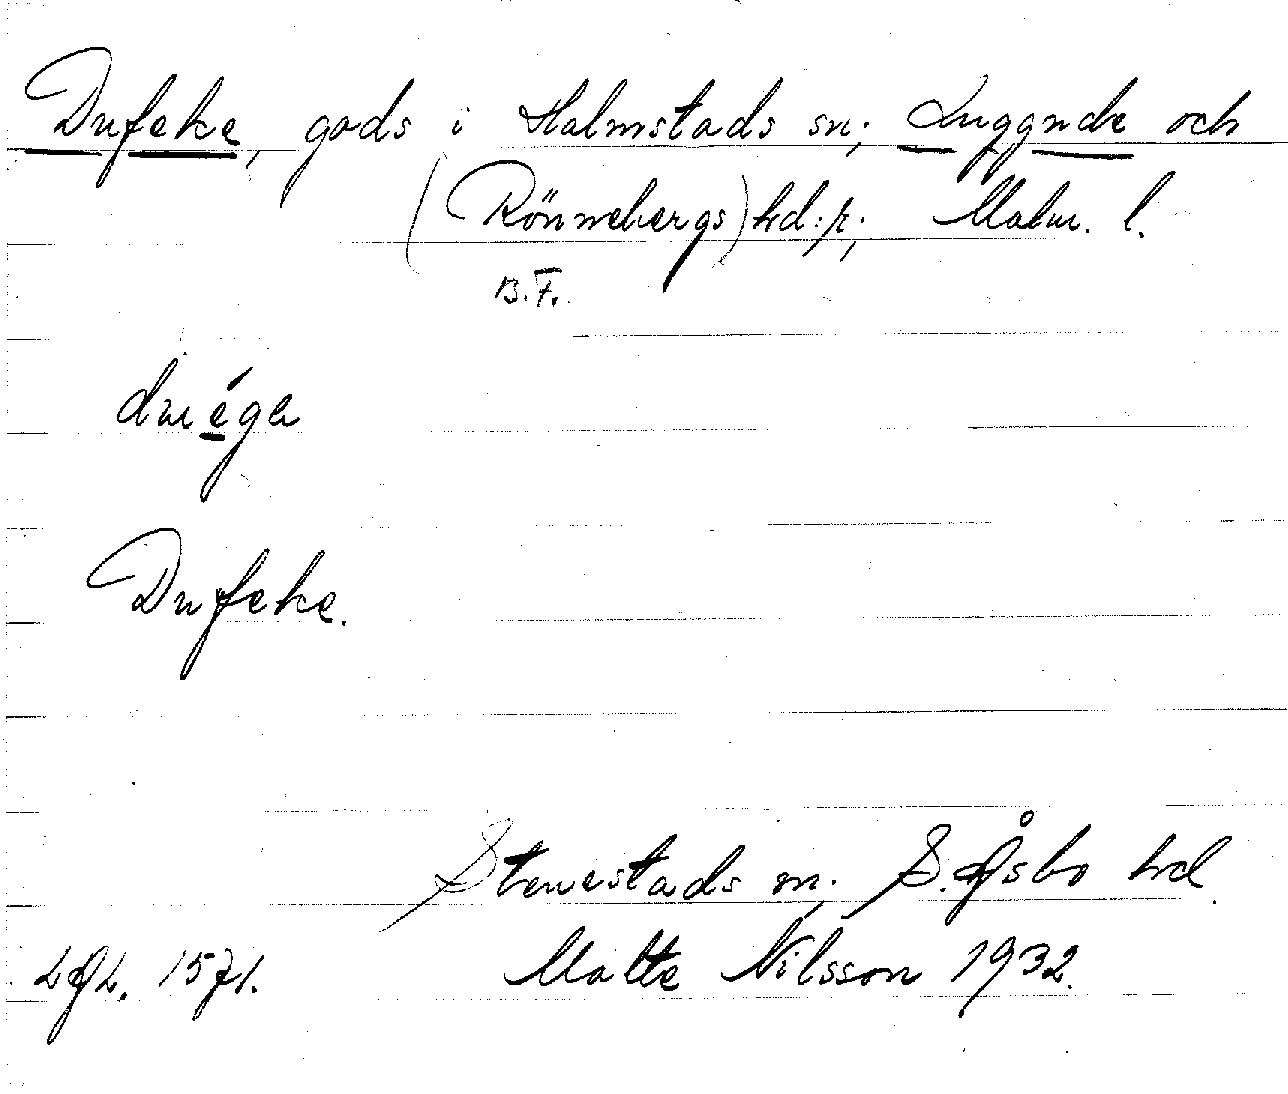 Dufeke, gods i Halmstads sn; Luggude och
(Rönnebergs) hd:r; Malm. l.
B.F.
duéga
Dufeke.
Stenestads sn; S. Åsbo hd.
LAL. 1571. Malte Nilsson 1932.